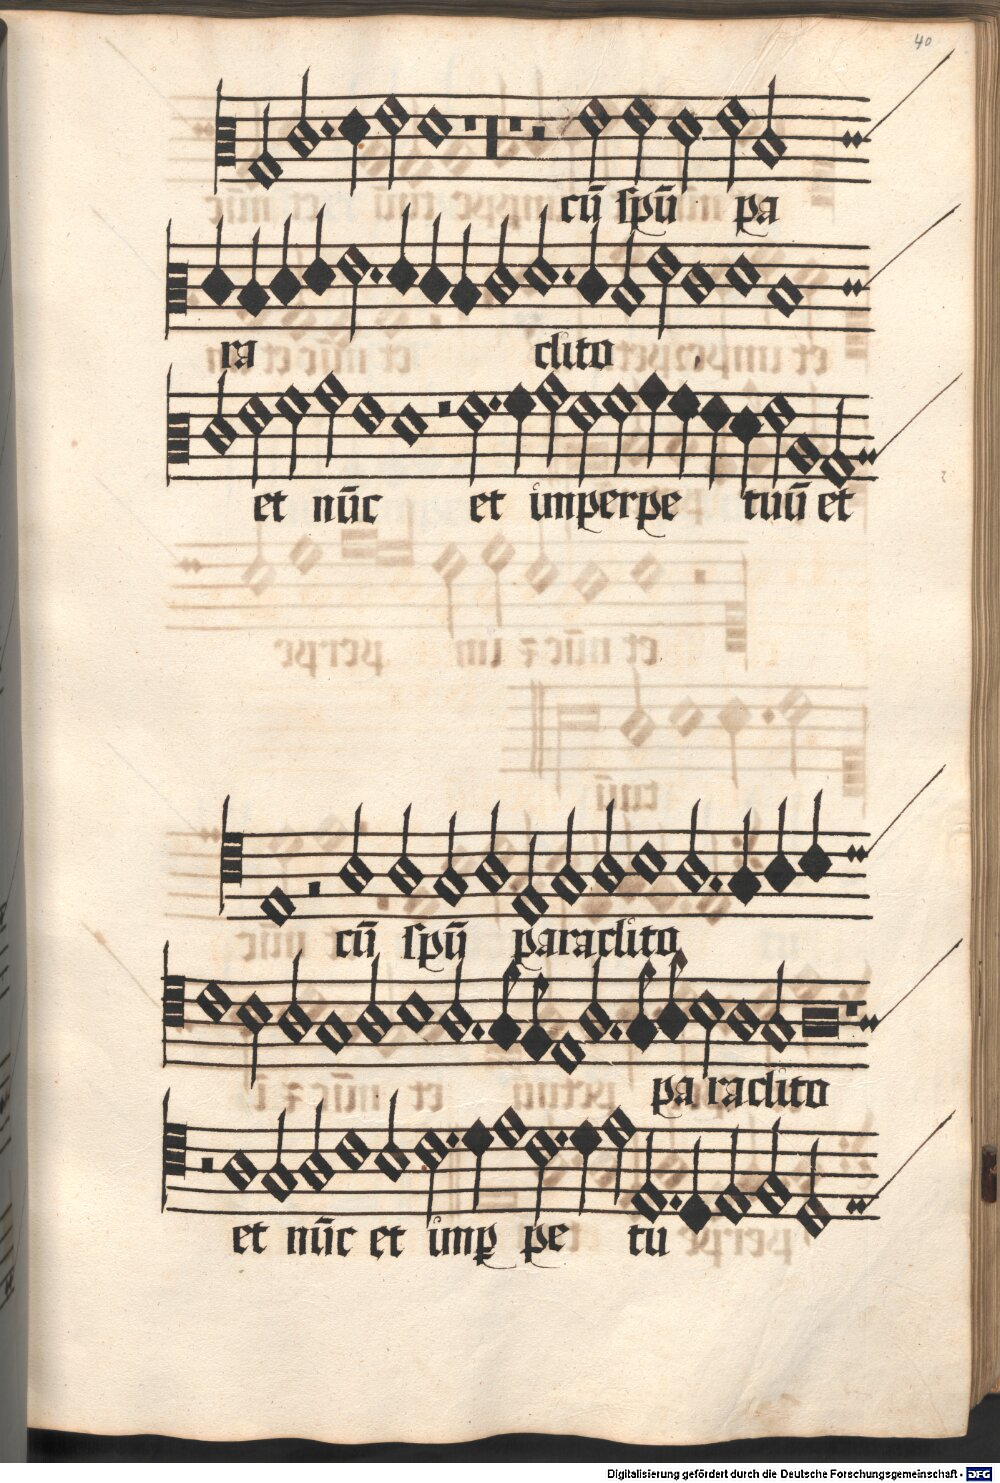 40
cū spū pa
ra clito
et nūc et imperpe tuū et
cū spū paraclito
pa raclito
et nūc et imꝑ pe tu
Digitalisierung gefördert durch die Deutsche Forschungsgemeinschaft - DFG